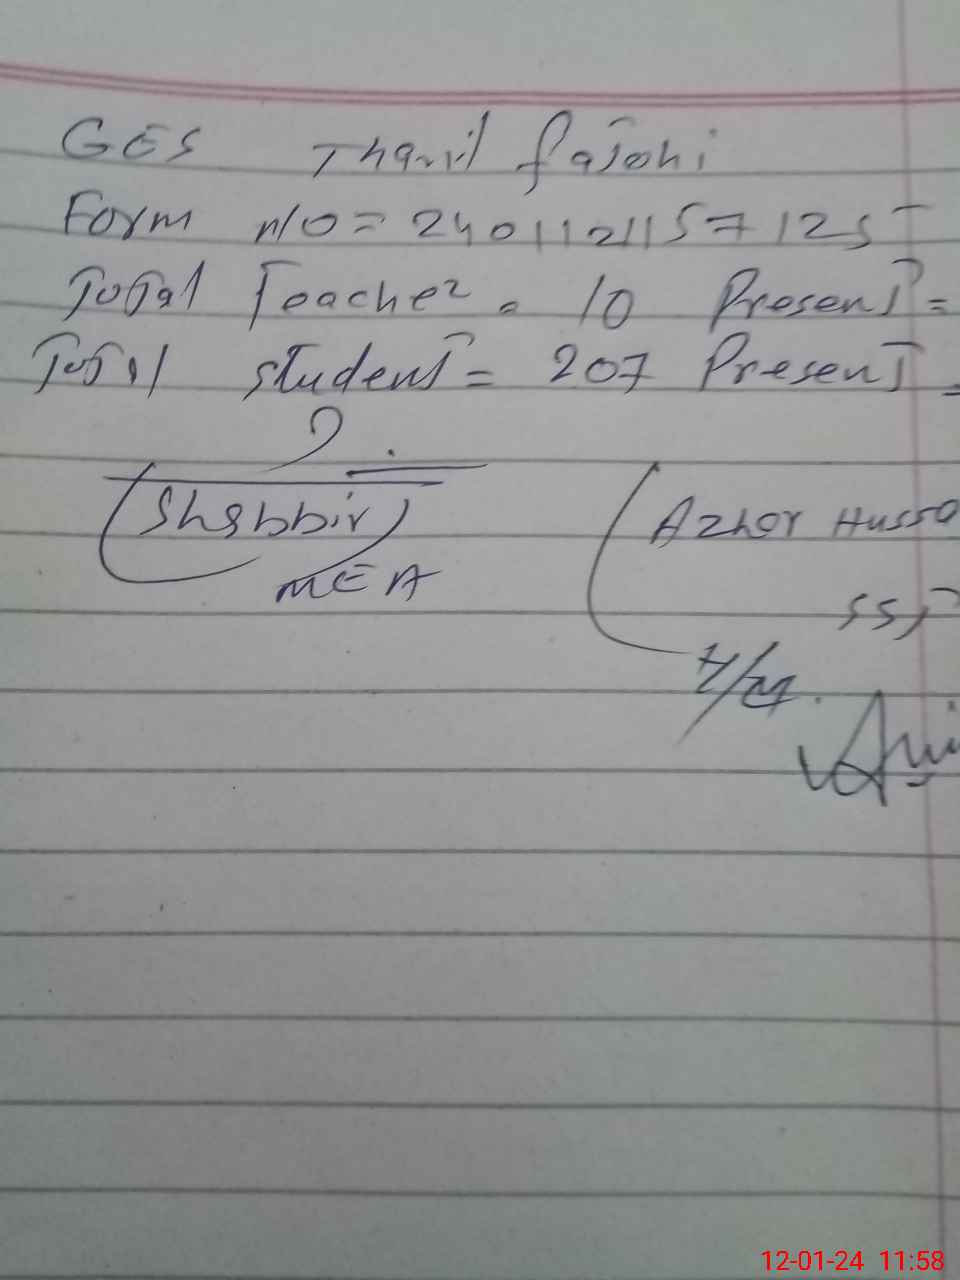 GES Tharil
Form n/o = 2401121157125
Total Teacher = 10 Present =
Total student = 207 Present =
(Shabbir)
MEA
Azhar Hussa
SST
H/M.
12-01-24 11:58